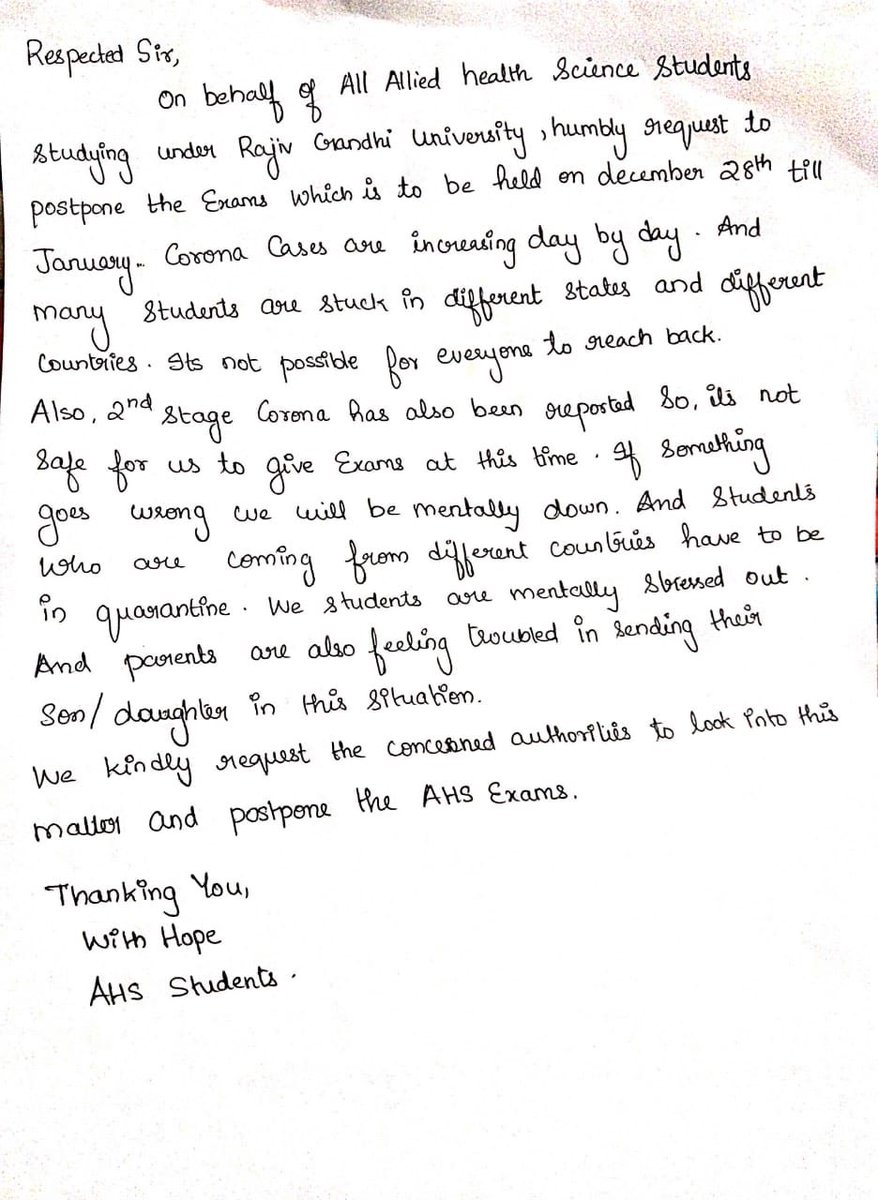 Respected Sir,
On behalf of All Allied health Science Students
Studying under Rajiv Gandhi University, humbly request to
postpone the Exams which is to be held on december 28th till
January.. Corona Cases are increasing day by day. And
many Students are stuck in different states and different
Countries. Its not possible for everyone to reach back.
Also, 2nd Stage Corona has also been reported So, its not
Safe for us to give Exams at this time. If Something
goes wrong we will be mentally down. And Students
who are coming from different countries have to be
in quarantine. We students are mentally stressed out.
And parents are also feeling troubled in sending their
Son/daughter in this situation.
We kindly request the concerned authorities to look into this
matter and postpone the AHS Exams.
Thanking You,
With Hope
AHS Students.